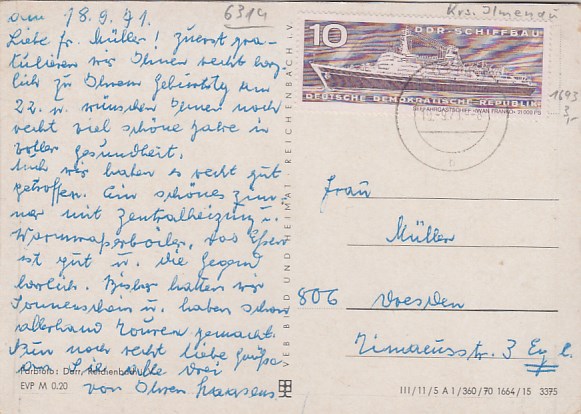 am 18.9.71.
Liebe Fr. Müller! Zuerst gra-
tulieren wir Ihnen recht herz-
lich zu Ihrem Geburtstag am
22. u. wünschen Ihnen noch
recht viel schöne Jahre in
voller Gesundheit.
Auch wir haben es recht gut
getroffen. Ein schönes Zim-
mer mit Zentralheizung u.
Warmwasserboiler, das Essen
ist gut u. die Gegend
herrlich. Bisher hatten wir
Sonnenschein u. haben schon
allerhand Touren gemacht.
Nun noch recht liebe Grüße
an Sie alle drei
von Ihren
Farbfoto: Darr, Reichenbach
EVP M 0.20
VEB BILD UND HEIMAT · REICHENBACH I. V.
6314
Krs. Ilmenau
10 DDR-SCHIFFBAU
DEUTSCHE DEMOKRATISCHE REPUBLIK
FAHRGASTSCHIFF "IWAN FRANKO" 21000 PS
b
1693
Frau
Müller
806 Dresden
Timaeusstr. 3
III/11/5 A 1/360/70 1664/15 3375